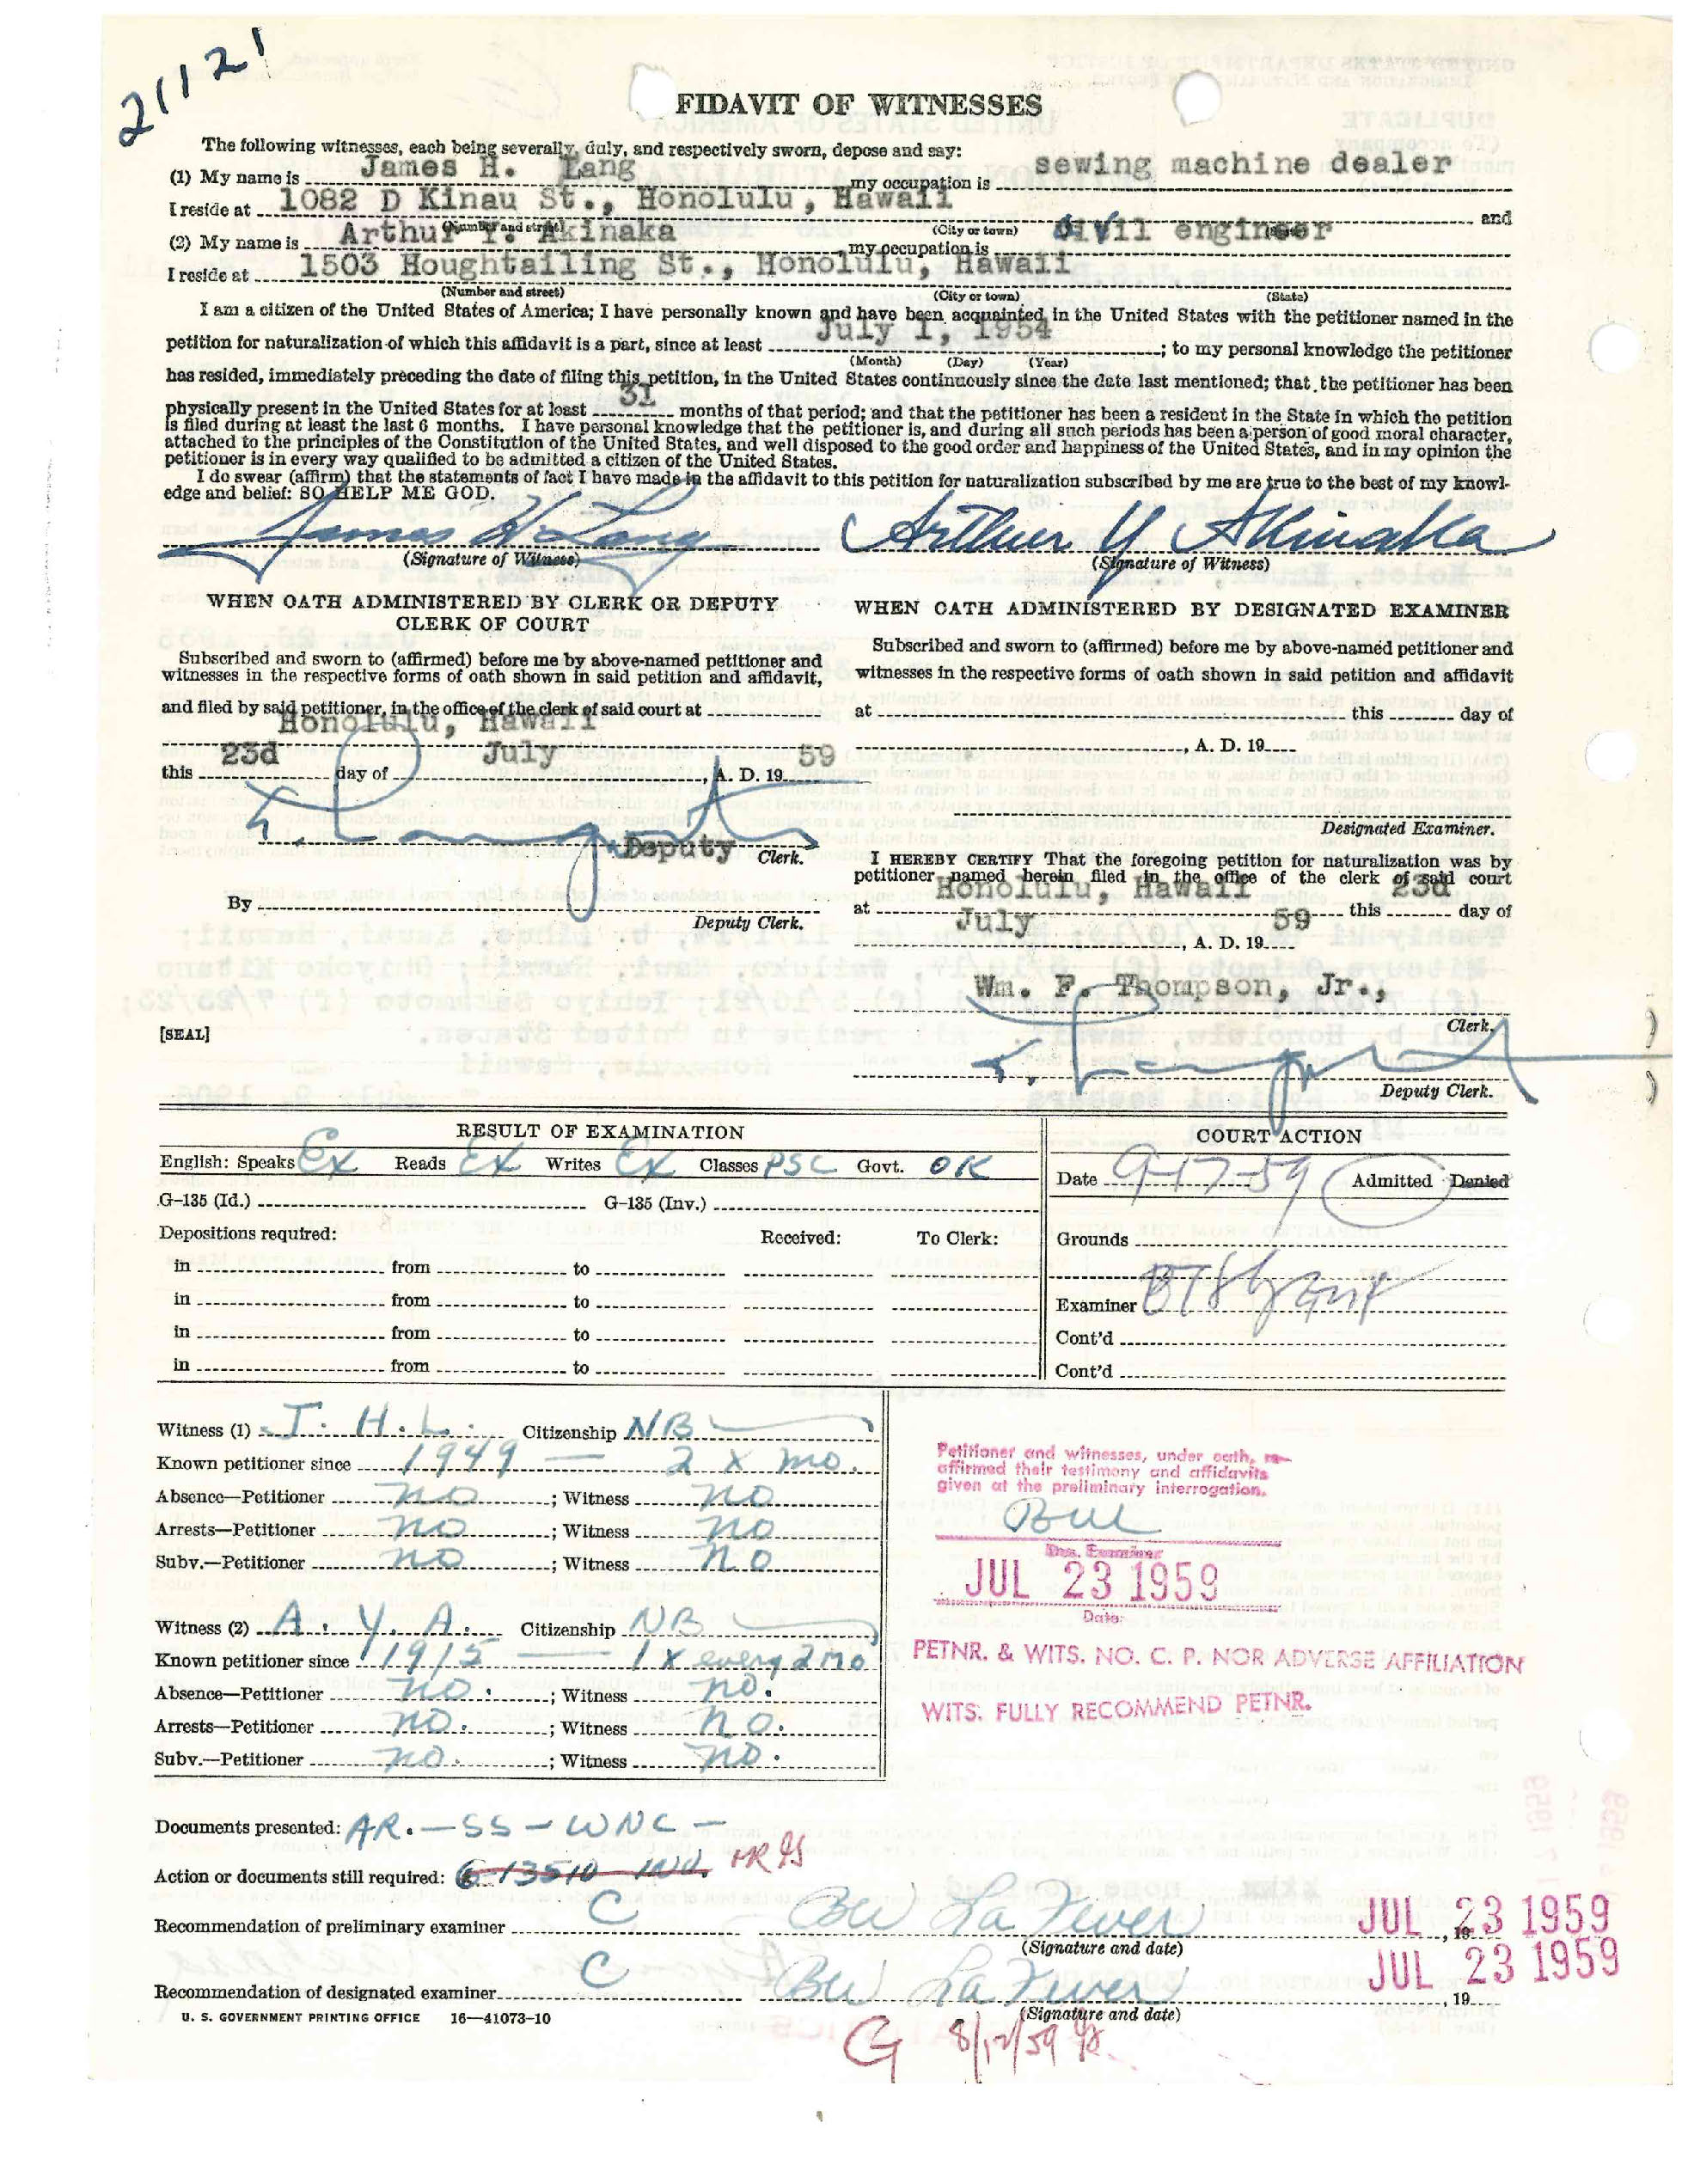 21121
FIDAVIT OF WITNESSES
The following witnesses, each being severally, duly, and respectively sworn, depose and say:
(1) My name is James H. Lang my occupation is sewing machine dealer
I reside at 1082 D Kinau St., Honolulu, Hawaii and
(Number and street) (City or town)
(2) My name is Arthur Y. Akinaka my occupation is civil engineer
I reside at 1503 Houghtailing St., Honolulu, Hawaii
(Number and street) (City or town) (State)
I am a citizen of the United States of America; I have personally known and have been acquainted in the United States with the petitioner named in the
petition for naturalization of which this affidavit is a part, since at least July 1, 1954; to my personal knowledge the petitioner
(Month) (Day) (Year)
has resided, immediately preceding the date of filing this petition, in the United States continuously since the date last mentioned; that the petitioner has been
physically present in the United States for at least 31 months of that period; and that the petitioner has been a resident in the State in which the petition
is filed during at least the last 6 months. I have personal knowledge that the petitioner is, and during all such periods has been a person of good moral character,
attached to the principles of the Constitution of the United States, and well disposed to the good order and happiness of the United States, and in my opinion the
petitioner is in every way qualified to be admitted a citizen of the United States.
I do swear (affirm) that the statements of fact I have made in the affidavit to this petition for naturalization subscribed by me are true to the best of my knowl-
edge and belief: SO HELP ME GOD.
James H Lang Arthur Y Akinaka
(Signature of Witness) (Signature of Witness)
WHEN OATH ADMINISTERED BY CLERK OR DEPUTY
CLERK OF COURT
Subscribed and sworn to (affirmed) before me by above-named petitioner and
witnesses in the respective forms of oath shown in said petition and affidavit,
and filed by said petitioner, in the office of the clerk of said court at
Honolulu, Hawaii
this 23d day of July, A. D. 19 59
Deputy Clerk.
By
Deputy Clerk.
[SEAL]
WHEN OATH ADMINISTERED BY DESIGNATED EXAMINER
Subscribed and sworn to (affirmed) before me by above-named petitioner and
witnesses in the respective forms of oath shown in said petition and affidavit
at this day of
, A. D. 19
Designated Examiner.
I HEREBY CERTIFY That the foregoing petition for naturalization was by
petitioner named herein filed in the office of the clerk of said court
at Honolulu, Hawaii this 23d day of
July, A. D. 19 59
Wm. F. Thompson, Jr.,
Clerk.
Deputy Clerk.
RESULT OF EXAMINATION
English: Speaks Ex Reads Ex Writes Ex Classes PSC Govt. OK
G-135 (Id.) G-135 (Inv.)
Depositions required: Received: To Clerk:
in from to
in from to
in from to
in from to
COURT ACTION
Date 9-17-59 Admitted Denied
Grounds
Examiner
Cont'd
Cont'd
Witness (1) J. H. L. Citizenship NB
Known petitioner since 1949 — 2 x mo.
Absence—Petitioner no; Witness no
Arrests—Petitioner no; Witness no
Subv.—Petitioner no; Witness no
Witness (2) A. Y. A. Citizenship NB
Known petitioner since 1915 — 1 x every 2 mo
Absence—Petitioner no.; Witness no.
Arrests—Petitioner no.; Witness no.
Subv.—Petitioner no.; Witness no.
Petitioner and witnesses, under oath, re-
affirmed their testimony and affidavits
given at the preliminary interrogation.
Des. Examiner
JUL 23 1959
Date
PETNR. & WITS. NO. C. P. NOR ADVERSE AFFILIATION
WITS. FULLY RECOMMEND PETNR.
Documents presented: AR. — SS — WNC —
Action or documents still required:
Recommendation of preliminary examiner C BW LaFever JUL 23 1959
(Signature and date), 19
Recommendation of designated examiner C BW LaFever JUL 23 1959
(Signature and date), 19
U. S. GOVERNMENT PRINTING OFFICE 16—41073-10
G 8/12/59